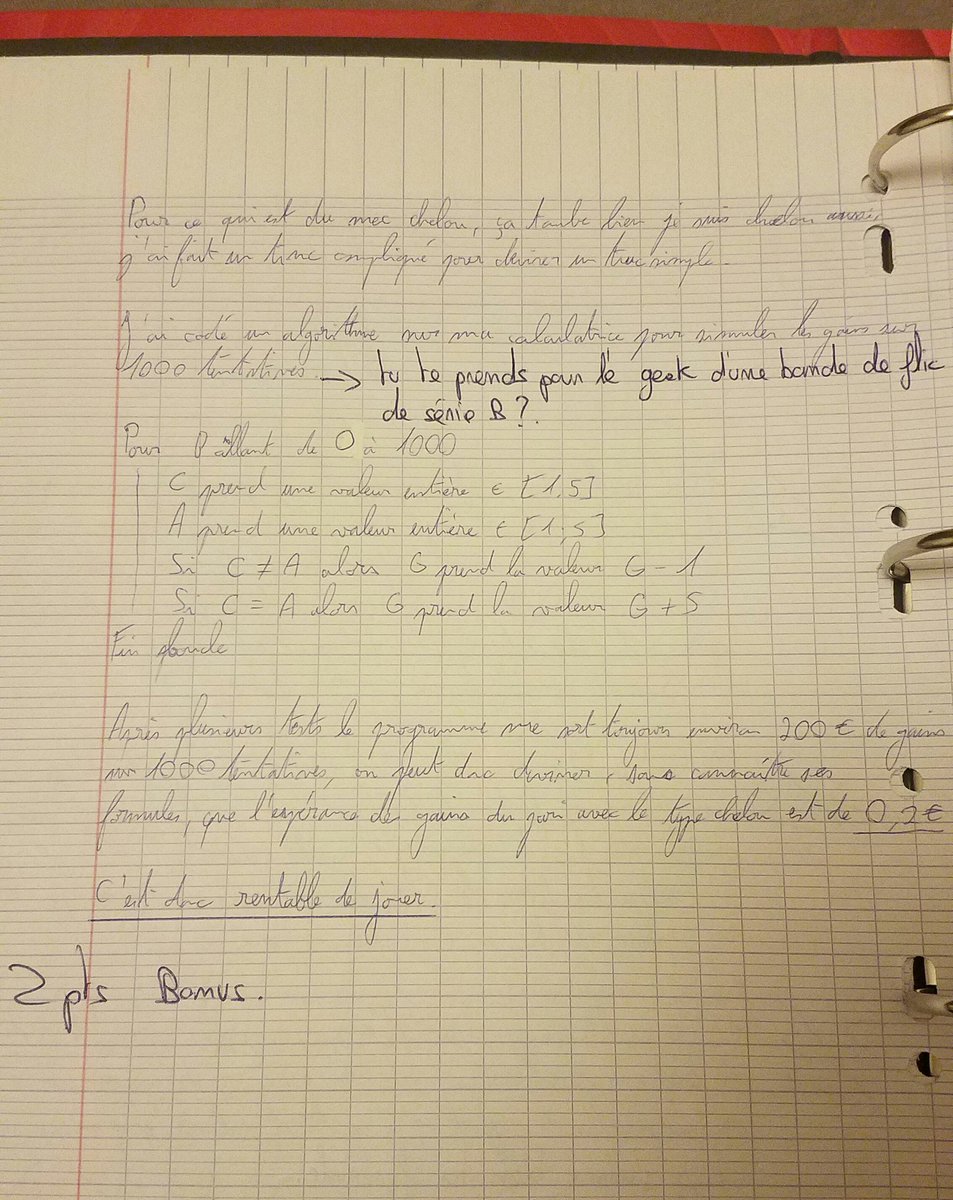 Pour ce qui est du mec chelou, ça tombe bien je suis chelou aussi,
j'ai fait un truc compliqué pour deviner un truc simple.
J'ai codé un algorithme sur ma calculatrice pour simuler les gains sur
1000 tentatives. → tu te prends pour le geek d'une bande de flic
de série B ?.
Pour P allant de 0 à 1000
C prend une valeur entière ∈ [1,5]
A prend une valeur entière ∈ [1,5]
Si C ≠ A alors G prend la valeur G - 1
Si C = A alors G prend la valeur G + 5
Fin boucle
Après plusieurs tests le programme me sort toujours environ 200 € de gains
sur 1000 tentatives, on peut donc deviner, sans connaître ses
formules, que l'espérance de gains du pari avec le type chelou est de 0,2 €
C'est donc rentable de jouer.
2 pts Bonus.